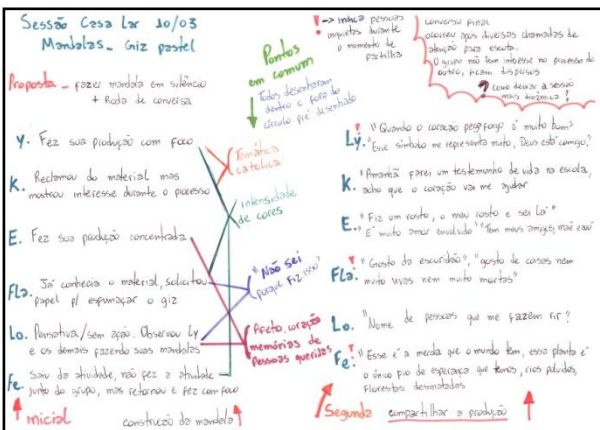 Sessão Casa Lar 10/03
Mandalas - Giz pastel
Proposta - fazer mandala em silêncio
+ Roda de conversa
Y. Fez sua produção com foco
K. Reclamou do material mas
mostrou interesse durante o processo
E. Fez sua produção concentrada
Fla. Já conhecia o material, solicitou
papel p/ esfumaçar o giz
Lo. Pensativa/sem ação. Observou Ly
e os demais fazendo suas mandalas
Fe. Saiu da atividade, não fez a atividade
junto do grupo, mas retornou e fez com foco
inicial
construção da mandala
Pontos
em comum
Todos desenharam
dentro e fora do
círculo pré desenhado
Temática
católica
intensidade
de cores
"Não sei
porque fiz isso"
Afeto, coração
memórias de
pessoas queridas
! -> indica pessoas
inquietas durante
o momento de
partilha
conversa final
ocorreu após diversas chamadas de
atenção para escuta.
O grupo não tem interesse no processo do
outro, ficam dispersos
? como deixar a sessão
mais dinâmica?
Ly! "Quando o coração pega fogo é muito bom"
"Esse símbolo me representa muito, Deus está comigo."
K. "Amanhã farei um testemunho de vida na escola,
acho que o coração vai me ajudar
E. "Fiz um rosto, o meu rosto e sei lá"
"É muito amor envolvido" "Tem meus amigos, mãe
Fla! "Gosto da escuridão", "gosto de coisas nem
muito vivas nem muito mortas"
Lo. "Nome de pessoas que me fazem rir"
Fe! "Esse é a merda que o mundo tem, essa planta é
o único fio de esperança que temos, rios poluídos,
Florestas desmatadas
Segunda compartilhar a produção